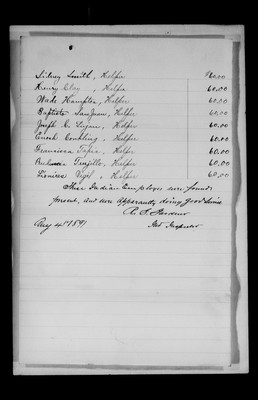 Sidney Smith, Helper $60.00
Henry Clay, Helper 60.00
Wade Hampton, Helper 60.00
Baptiste San Juan, Helper 60.00
Joseph C. Lujan, Helper 60.00
Enoch Conkling, Helper 60.00
Francisca Tapia, Helper 60.00
Trujillo, Helper 60.00
Vigil, Helper 60.00
These Indian Employes were found
present, and were apparently doing good service
Gardner
Ind Inspector
Aug 4th 1891